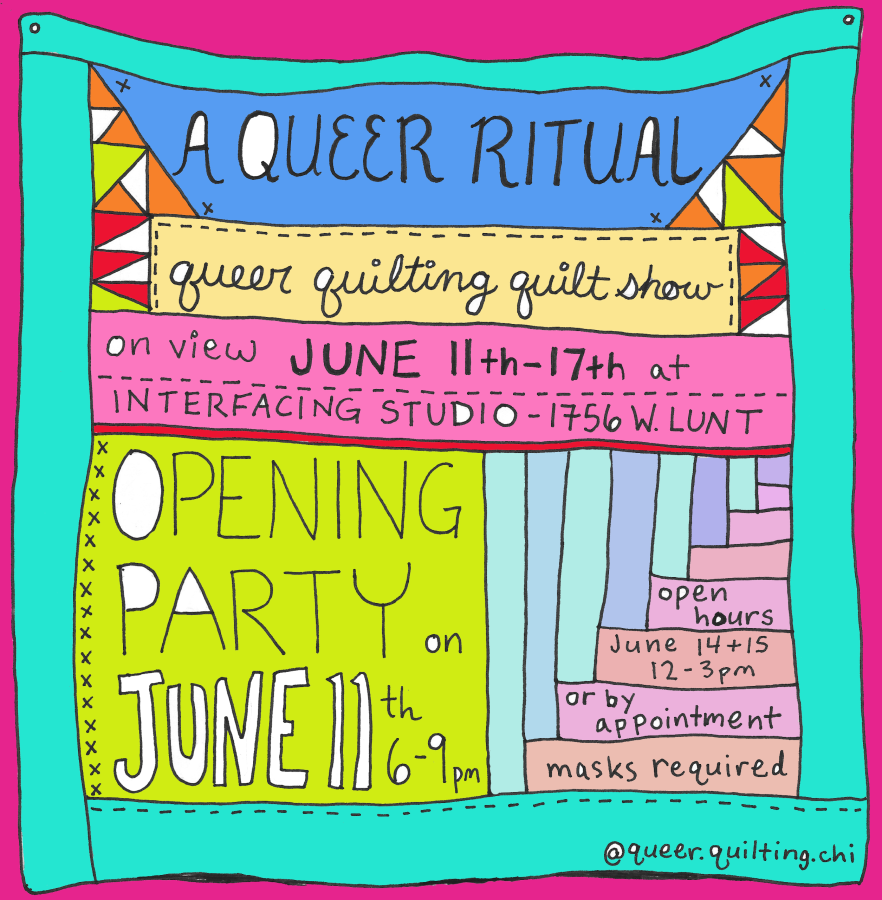 A QUEER RITUAL
queer quilting quilt show
on view JUNE 11th-17th at
INTERFACING STUDIO - 1756 W. LUNT
OPENING
PARTY on
JUNE 11th
6-9pm
open
hours
June 14+15
12-3pm
or by
appointment
masks required
@queer.quilting.chi